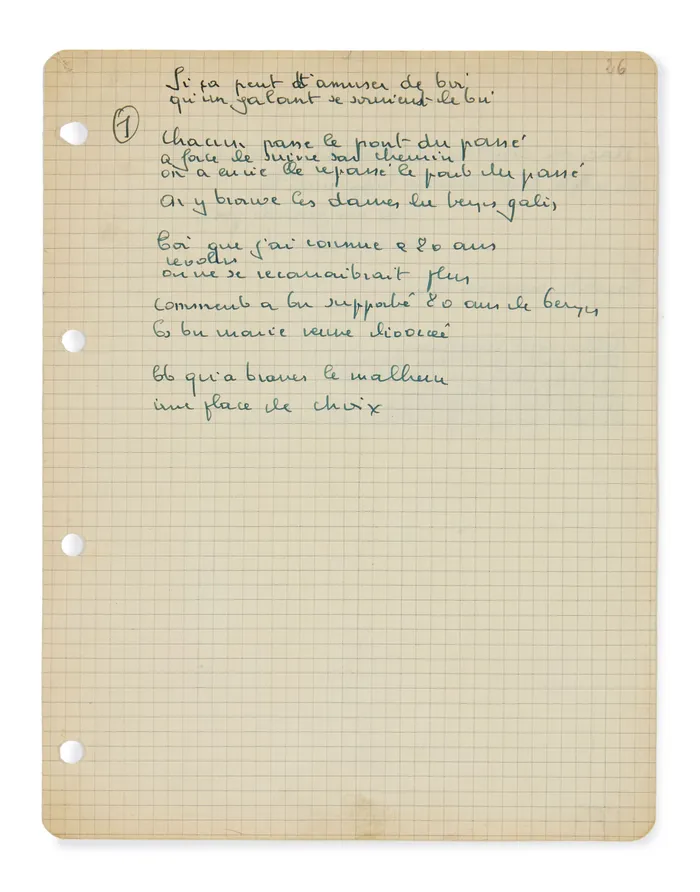 26
Si ça peut t'amuser de toi
qu'un galant se souvient de toi
1
Chacun passe le pont du passé
a face de suivre son chemin
on a envie de repassé le pont du passé
on y trouve les dames du temps jadis
toi que j'ai connue a 20 ans
revolus
on ne se reconnaitrait plus
comment a tu supporté 20 ans de temps
Es tu marie veuve divorcé
toi qui a bravé le malheur
une place de choix